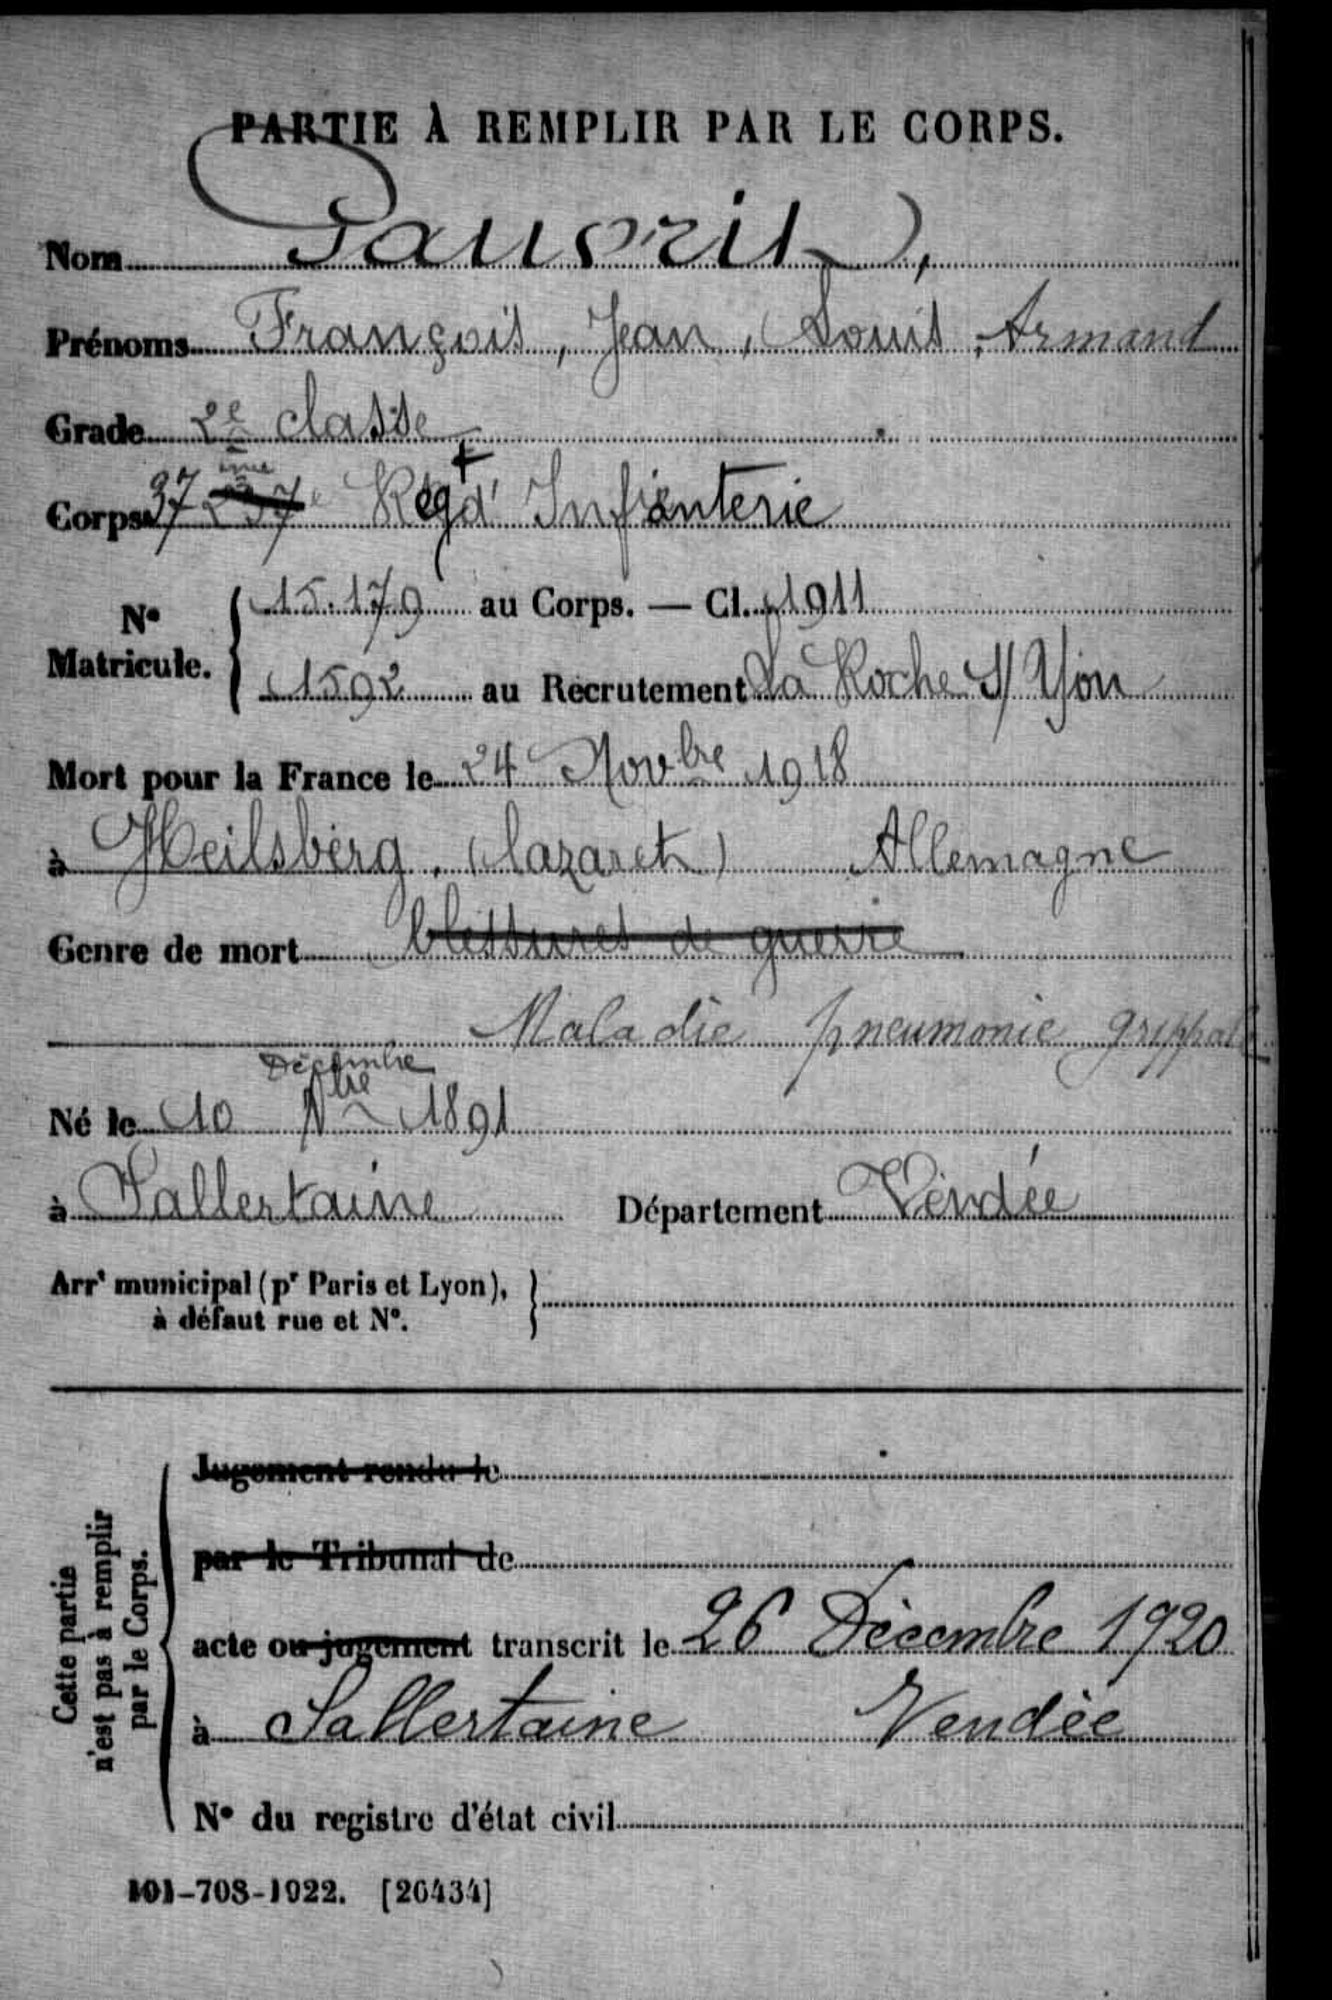 PARTIE À REMPLIR PAR LE CORPS.
Nom Pauvrit,
Prénoms François, Jean, Louis, Armand
Grade 2e classe
Corps 37 ème 237e Regt d'Infanterie
N° Matricule. { 15.179 au Corps. — Cl. 1911
1592 au Recrutement La Roche S/ Yon
Mort pour la France le 24 Novbre 1918
à Heilsberg, (lazaret) Allemagne
Genre de mort blessures de guerre
Maladie pneumonie grippale
Décembre
Né le 10 Nbre 1891
à Sallertaine Département Vendée
Arrt municipal (pr Paris et Lyon), à défaut rue et N°. }
Cette partie n'est pas à remplir par le Corps.
Jugement rendu le
par le Tribunal de
acte ou jugement transcrit le 26 Décembre 1920
à Sallertaine Vendée
N° du registre d'état civil
101-708-1922. [26434]